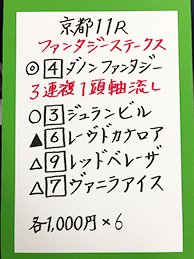 京都11R
ファンタジーステークス
◎ 4 ダノンファンタジー
3連複1頭軸流し
○ 3 ジュランビル
▲ 6 レーヴドカナロア
△ 9 レッドベレーザ
△ 7 ヴァニラアイス
各1,000円×6